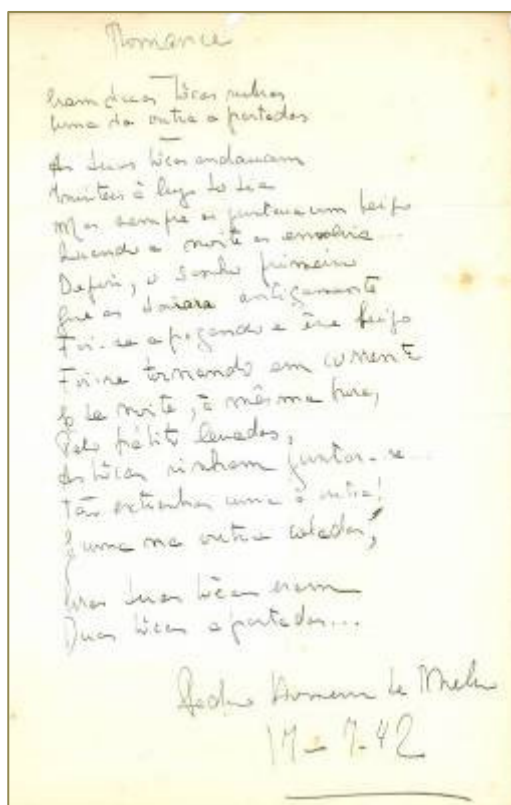 Romance
Eram duas bôcas rubras
Uma da outra apartadas
As duas bôcas andavam
à luz do dia
Mas sempre as juntava um beijo
Quando a noite as envolvia...
Depois, o sonho primeiro
Que as doirara antigamente
Foi-se apagando e êsse beijo
Foi-se tornando em corrente
E da noite, à mesma hora,
Pelo hábito levadas,
As bôcas vinham juntar-se...
Tão extranhas uma à outra!
E uma na outra coladas,
duas bôcas eram
Duas bôcas apartadas...
Pedro Homem de Mello
17-7-42